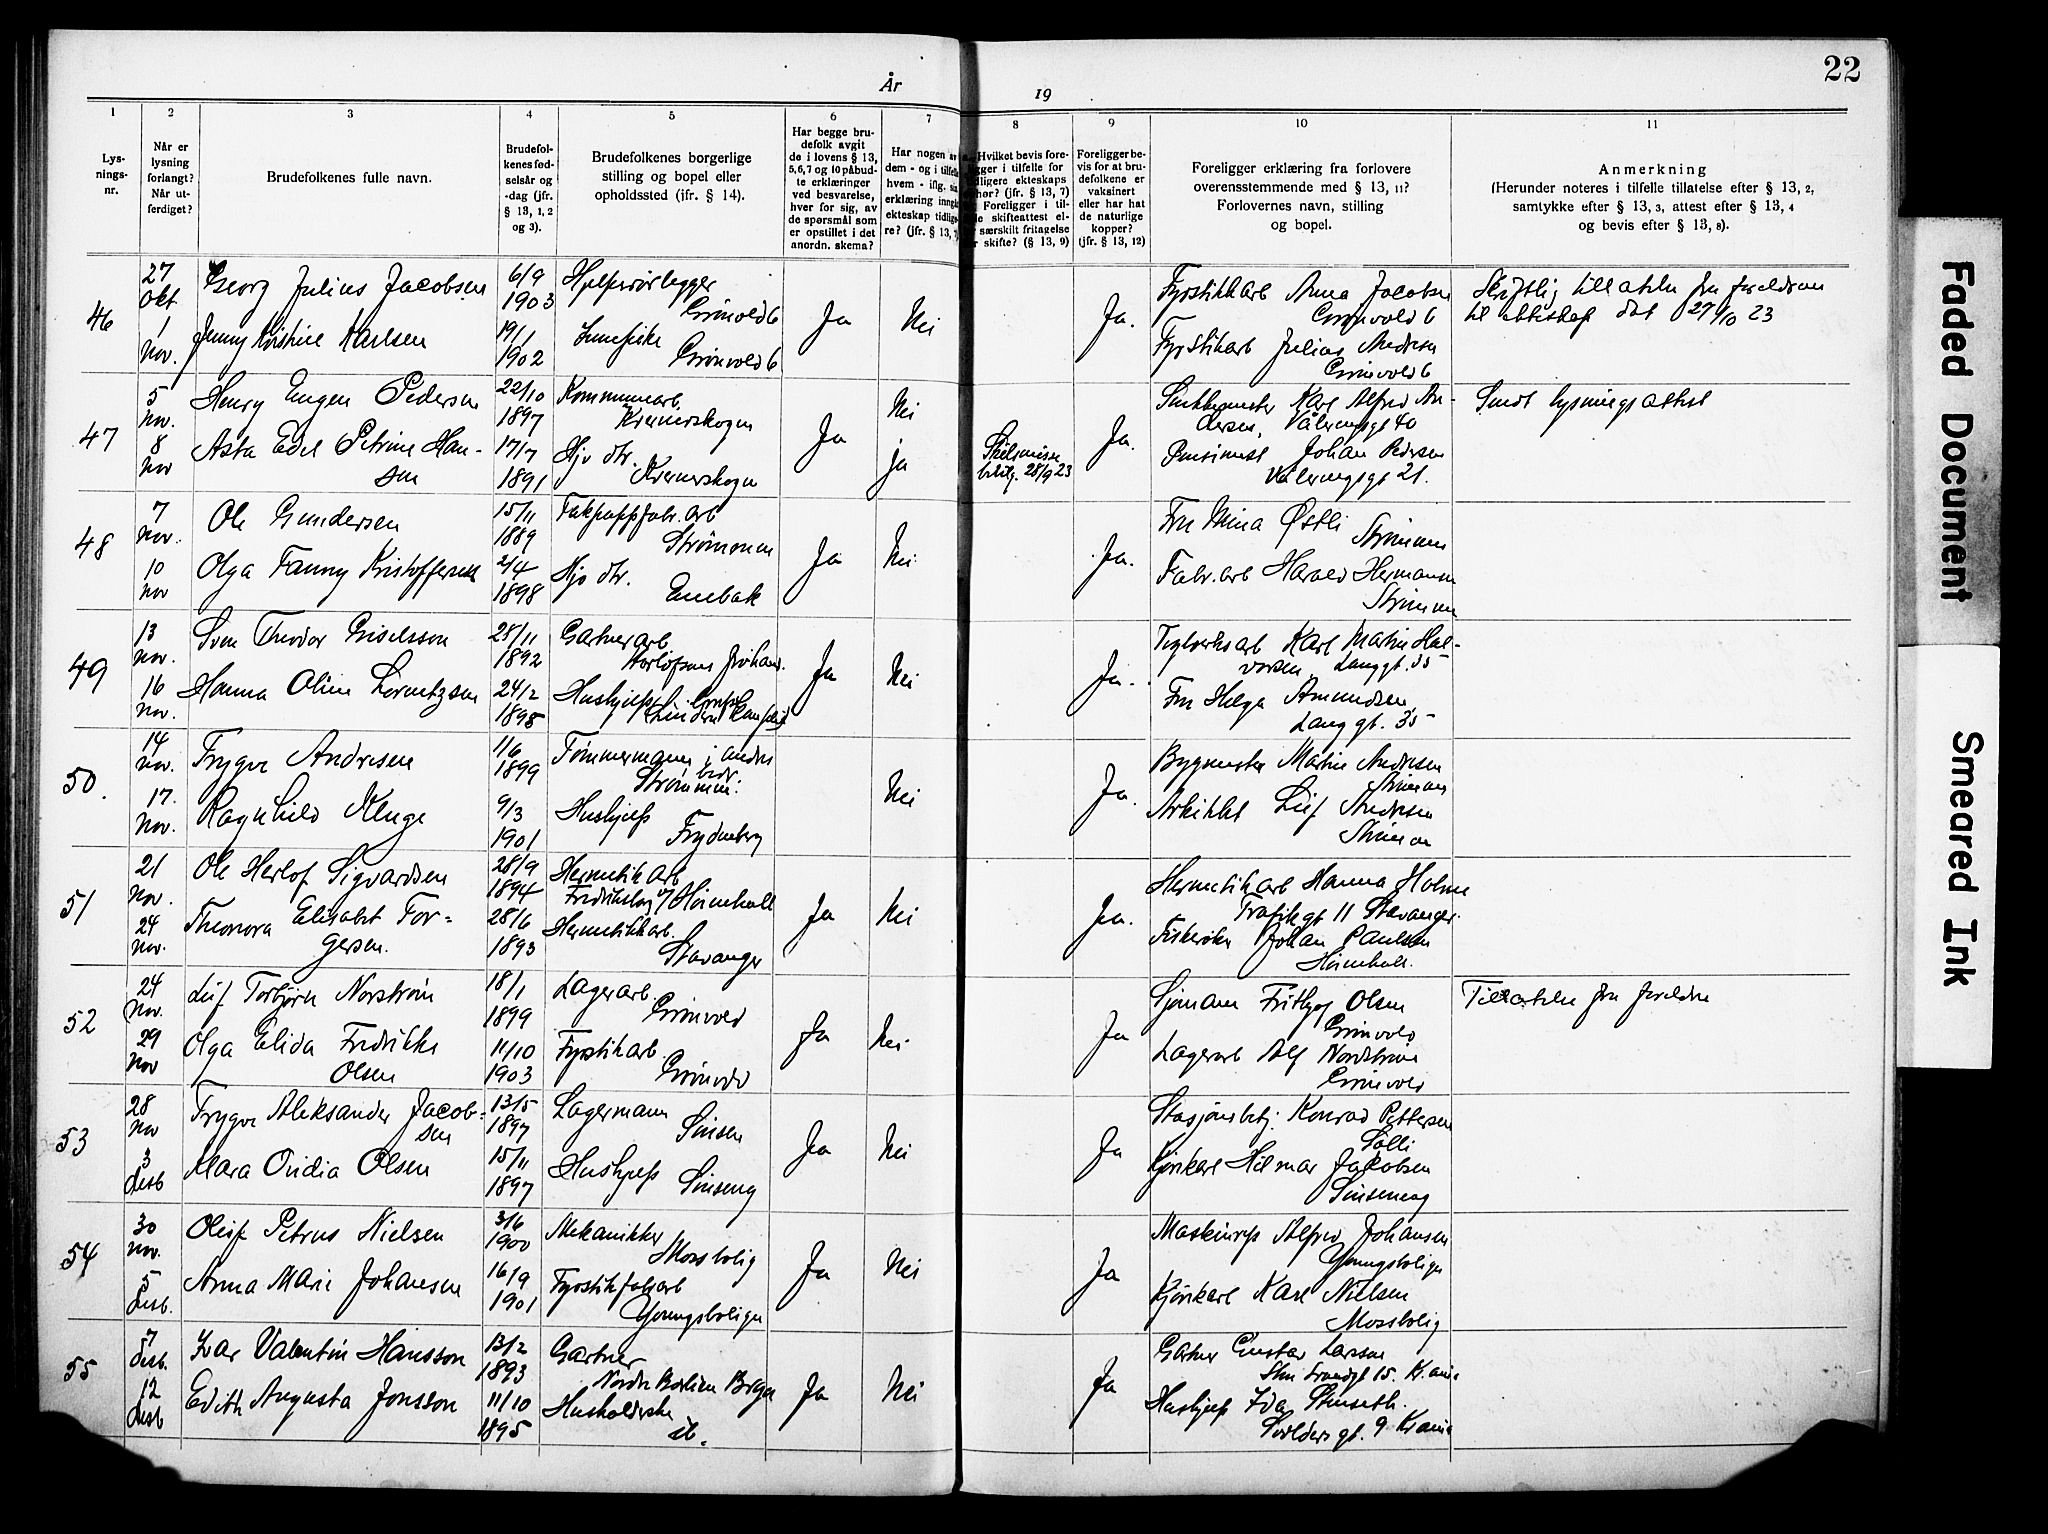 22
År
19
1 2 3 4 5 6 7 8 9 10 11
Lys-
nings-
nr.
Når er
lysning
forlangt?
Når ut-
ferdiget?
Brudefolkenes fulle navn.
Brudefol-
kenes fød-
selsår og
-dag (jfr.
§ 13, 1, 2
og 3).
Brudefolkenes borgerlige
stilling og bopel eller
opholdssted (jfr. § 14).
Har begge bru-
defolk avgit
de i lovens § 13,
5, 6, 7 og 10 påbud-
te erklæringer
ved besvarelse,
hver for sig, av
de spørsmål som
er opstillet i det
anordn. skema?
Har nogen
dem - og i tilfelle
hvem - iflg. sin
erklæring inngå
ekteskap tidlige-
re? (jfr. § 13, 7)
Hvilket bevis fore-
ligger i tilfelle for
tidligere ekteskaps
ophør? (jfr. § 13, 7)
Foreligger i til-
felle skifteattest el-
ler særskilt fritagelse
for skifte? (§ 13, 9)
Foreligger be-
vis for at bru-
defolkene er
vaksinert
eller har hat
de naturlige
kopper?
(jfr. § 13, 12)
Foreligger erklæring fra forlovere
overensstemmende med § 13, 11?
Forlovernes navn, stilling
og bopel.
Anmerkning
(Herunder noteres i tilfelle tillatelse efter § 13, 2,
samtykke efter § 13, 3, attest efter § 13, 4
og bevis efter § 13, 8).
46
27 Okt
1 Nov.
Georg Julius Jacobsen
Jenny Kristine Karlsen
6/9 1903
19/1 1902
Hjelperørlegger
Grønvold 6
Grønvold 6
Ja
Nei
Ja.
Fyrstikkarb Anna Jacobsen
Grønvold 6
Fyrstikarb Julius Andresen
Grønvold 6
Skriftlig tillatelse fra foreldrene
til ekteskap dat 27/10 23
47
5 Nov.
8 Nov
Henry Eugen Pedersen
Asta Edel Petrine Han-
sen
22/10 1897
17/7 1891
Kommunearb.
Kværnerskogen
Hjv dtr.
Kværnerskogen
Ja
Nei
ja
Skilsmisse
bevilg. 28/9 23
Ja.
Karl Alfred An-
dersen, Vålerenggt 40
Johan Pedersen
Vålerenggt 21.
Sendt lysningsattest
48
7 Nov.
10 Nov
Ole Gundersen
Olga Fanny Kristoffersen
15/11 1889
2/4 1898
Takpappfabr. arb
Strømmen
Hjv dtr.
Enebak
Ja
Nei
Ja.
Fru Mina Østli
Strømmen
Fabr. arb Harald Hermansen
Strømmen
49
13 Nov.
16 Nov.
Sven Theodor Giselsson
Hanna Oline Lorentzsen
28/11 1892
24/2 1898
Gartnerarb
Hushjelp
Ja
Nei
Ja.
Teglverksarb Karl Martin Hal-
vorsen, Langgt. 35
Fru Helga Amundsen
Langgt. 35
50.
14 Nov.
17. Nov.
Trygve Andresen
Ragnhild Kluge
1/6 1899
9/3 1901
Tømmermann i andres
bedr.
Strømmen.
Hushjelp
Frydenberg
Nei
Ja.
Byggmester Martin Andresen
Strømmen
Arkitekt Leif Andresen
Strømmen
51
21 Nov.
24 Nov.
Ole Herlof Sigvardsen
Theonora Elisabet Tor-
gersen.
28/9 1894
28/6 1893
Hermetikarb
Hermetikkarb.
Stavanger
Ja
Nei
Ja.
Hermetikarb Hanna Holme
Trafikgt 11 Stavanger.
Johan Paulsen
52
24 Nov.
29 Nov
Leif Torbjørn Norstrøm
Olga Elida Fredrikke
Olsen
18/1 1899
11/10 1903
Lagerarb.
Grønvold
Fyrstikarb.
Grønvold
Ja
Nei.
Ja
Sjømann Fritjof Olsen
Grønvold
Lagerarb Alf Nordstrøm
Grønvold
Tillatelse fra foreldre
53
28 Nov
3 Desb
Trygve Aleksander Jacob-
sen
Klara Ovidia Olsen
13/5 1897
15/11 1897
Lagermann
Sinsen
Hushjelp
Sinseng
Ja
Nei
Ja
Stasjonsbetj. Konrad Pettersen
Solli
Kjørekarl Hilmar Jakobsen
Sinseneng
54
30 Nov.
5 Desb.
Oleif Petrus Nielsen
Anna Marie Johansen
3/6 1900
16/9 1901
Mekanikker
Mossbolig
Fyrstikfabarb
Youngsboligen
Ja
Nei
Ja
Maskinrep Alfred Johansen
Youngsboligen
Kjørekarl Karl Nielsen
Mossbolig
55
7 Desb.
12 Desb
Ivar Valentin Hansson
Edith Augusta Jonsson
13/2 1893
11/10 1895
Gartner
Husholderske
do.
Ja
Nei
Ja
Gartner Gustav Larsson
Hushjelp Ida Stenseth.
9 Krania
Faded Document
Smeared Ink